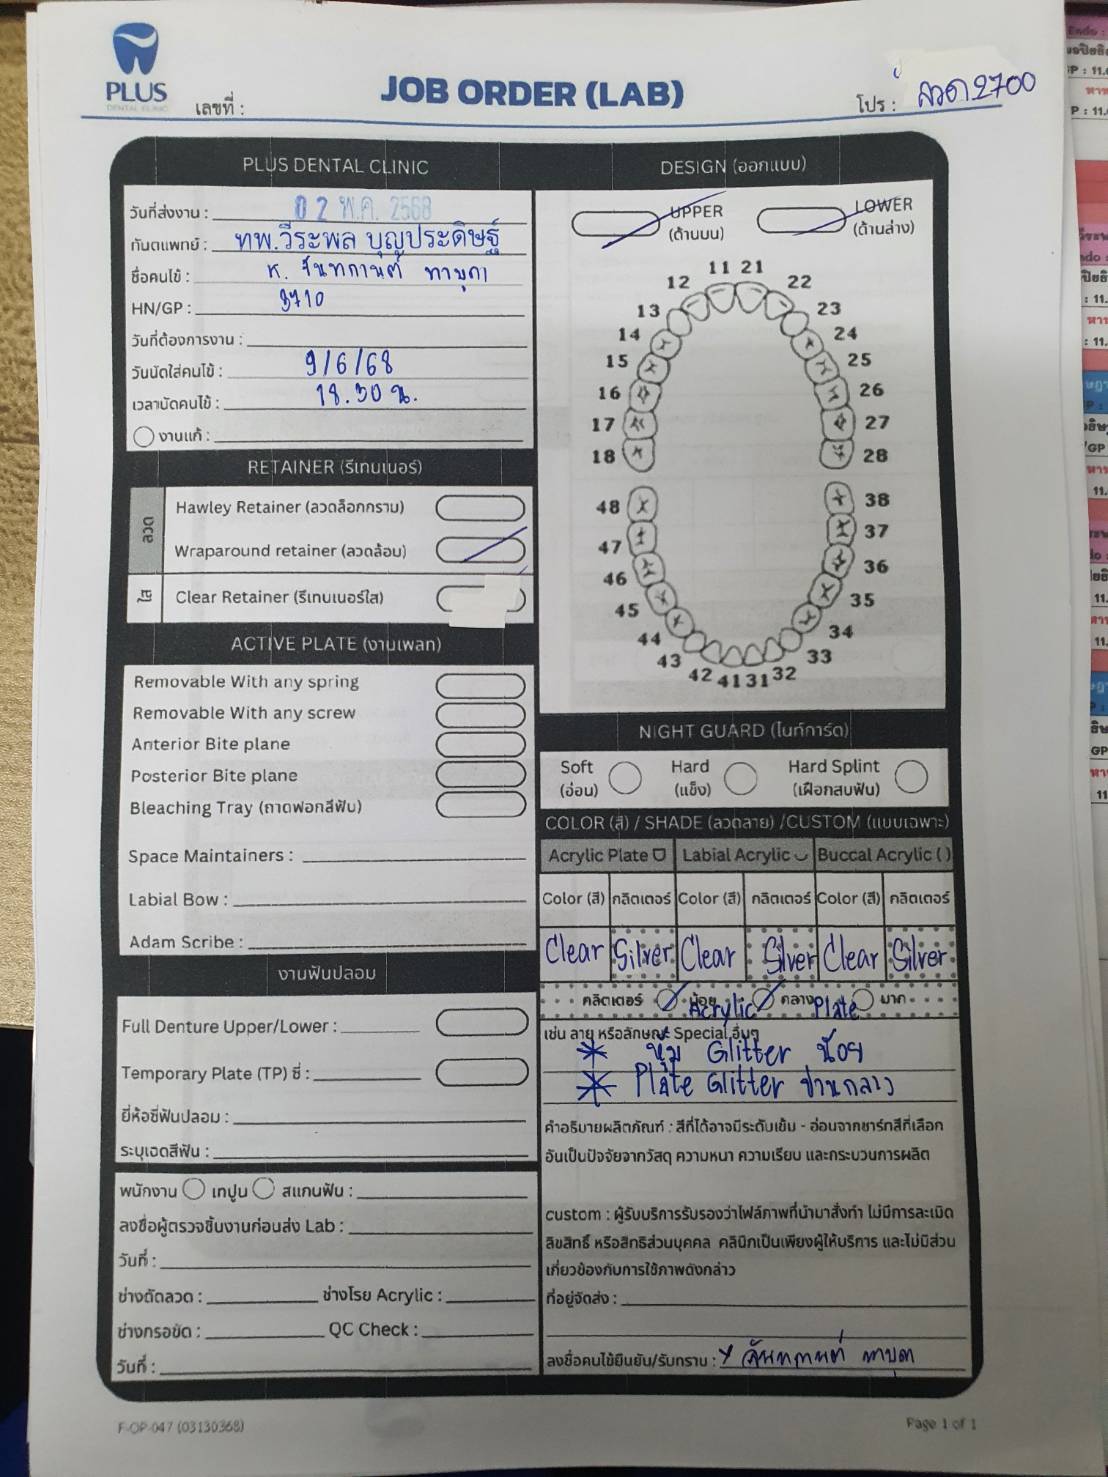 PLUS
DENTAL CLINIC
เลขที่ :
JOB ORDER (LAB)
โปร : ลวด 2700
PLUS DENTAL CLINIC
วันที่ส่งงาน : 02 พ.ค. 2568
ทันตแพทย์ : ทพ.วีระพล บุญประดิษฐ์
ชื่อคนไข้ :
HN/GP : 3710
วันที่ต้องการงาน :
วันนัดใส่คนไข้ : 9/6/68
เวลานัดคนไข้ : 18.30 น.
งานแก้ :
RETAINER (รีเทนเนอร์)
ลวด
Hawley Retainer (ลวดล็อกกราม)
Wraparound retainer (ลวดล้อม)
ใส
Clear Retainer (รีเทนเนอร์ใส)
ACTIVE PLATE (งานเพลท)
Removable With any spring
Removable With any screw
Anterior Bite plane
Posterior Bite plane
Bleaching Tray (ถาดฟอกสีฟัน)
Space Maintainers :
Labial Bow :
Adam Scribe :
งานฟันปลอม
Full Denture Upper/Lower :
Temporary Plate (TP) ซี่ :
ยี่ห้อซี่ฟันปลอม :
ระบุเฉดสีฟัน :
พนักงาน เทปูน สแกนฟัน :
ลงชื่อผู้ตรวจชิ้นงานก่อนส่ง Lab :
วันที่ :
ช่างดัดลวด : ช่างโรย Acrylic :
ช่างกรอขัด : QC Check :
วันที่ :
DESIGN (ออกแบบ)
UPPER
(ด้านบน)
LOWER
(ด้านล่าง)
11 21
12 22
13 23
14 24
15 25
16 26
17 27
18 28
48 38
47 37
46 36
45 35
44 34
43 33
42 41 31 32
NIGHT GUARD (ไนท์การ์ด)
Soft
(อ่อน)
Hard
(แข็ง)
Hard Splint
(เฝือกสบฟัน)
COLOR (สี) / SHADE (ลวดลาย) /CUSTOM (แบบเฉพาะ)
Acrylic Plate Labial Acrylic Buccal Acrylic ( )
Color (สี) กลิตเตอร์ Color (สี) กลิตเตอร์ Color (สี) กลิตเตอร์
Clear Silver Clear Silver Clear Silver
กลิตเตอร์ น้อย กลาง มาก
Acrylic Plate
เช่น ลาย หรือลักษณะ Special อื่นๆ
* หุ้ม Glitter น้อย
* Plate Glitter ปานกลาง
คำอธิบายผลิตภัณฑ์ : สีที่ได้อาจมีระดับเข้ม - อ่อนจากชาร์ทสีที่เลือก
อันเป็นปัจจัยจากวัสดุ ความหนา ความเรียบ และกระบวนการผลิต
custom : ผู้รับบริการรับรองว่าไฟล์ภาพที่นำมาสั่งทำ ไม่มีการละเมิด
ลิขสิทธิ์ หรือสิทธิส่วนบุคคล คลินิกเป็นเพียงผู้ให้บริการ และไม่มีส่วน
เกี่ยวข้องกับการใช้ภาพดังกล่าว
ที่อยู่จัดส่ง :
ลงชื่อคนไข้ยืนยัน/รับทราบ :
F-OP-047 (03130368)
Page 1 of 1